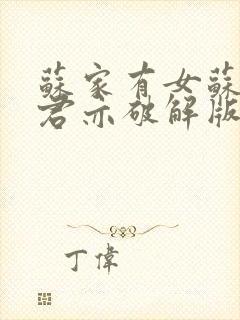 蘇家有女蘇
君亦破解版
丁偉